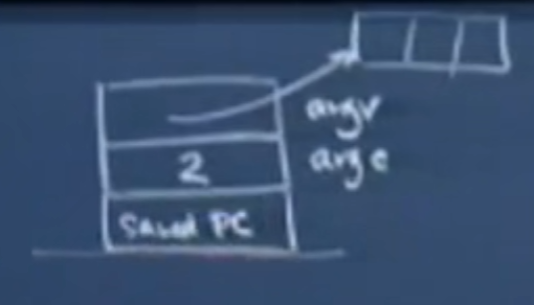 argv
2 argc
Saved PC